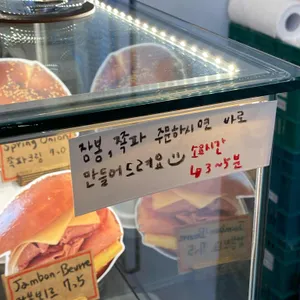 Spring Onion
쪽파크림 7.0
장봉, 쪽파 주문하시면 바로
만들어드려요 소요시간
↳ 3~5분
Jambon-Beurre
잠봉뵈르 7.5